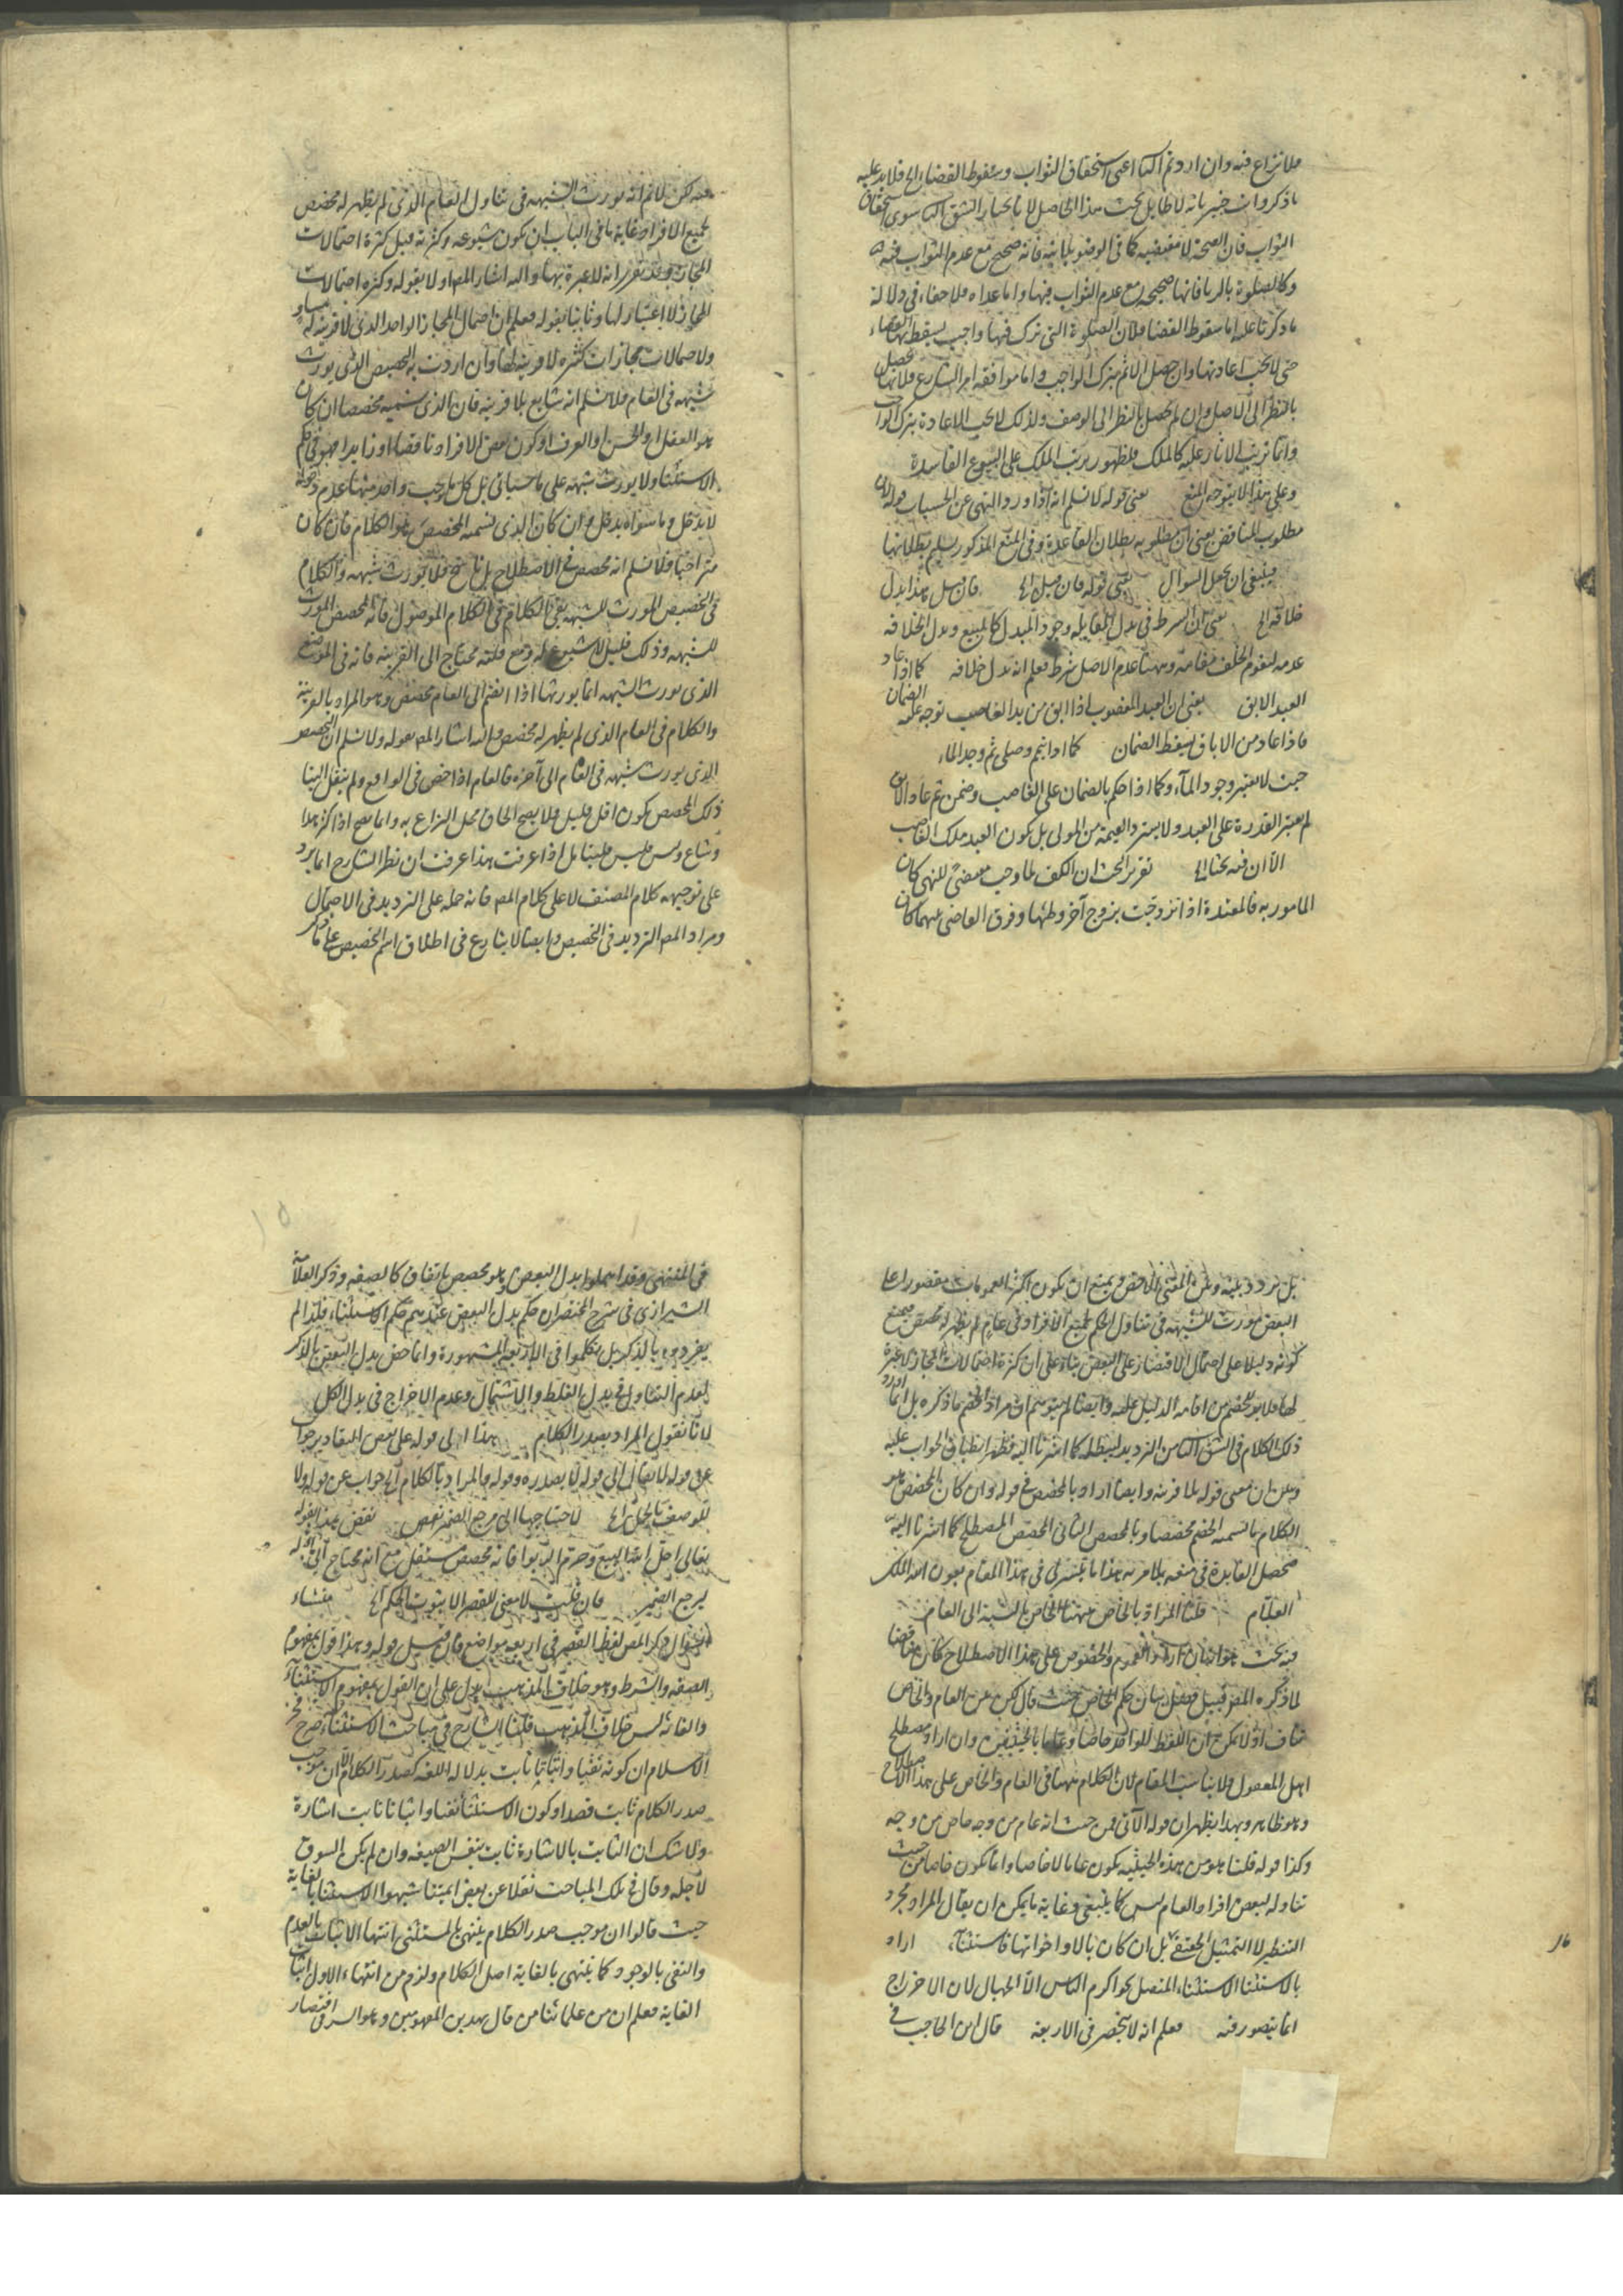 فلا نزاع فيه وان اردتم الثانى اعنى استحقاق الثواب وسقوط القضاء الخ فلا بد عليه
ما ذكر وانت خبير بانه لا طايل تحت هذا الحاصل لانا نختار الشق الثانى سوى استحقاق
الثواب فان الصحة لا تقتضيه كما فى الوضوء بلا نية فانه صحيح مع عدم الثواب فيه
وكالصلوة بالريا فانها صحيحة مع عدم الثواب فيها واما عداه فلا خفاء فى دلالة
ما ذكرنا عليه اما سقوط القضا فلان الصلوة التى ترك فيها واجب يسقط بها القضاء
حتى لا يجب اعادتها وان حصل الاثم بترك الواجب واما موافقة امر الشارع فلانها تحصل
بالنظر الى الاصل وان لم يحصل بالنظر الى الوصف ولذلك لا يجب الاعادة بترك الواجب
واما ترتب الاثار عليه كالملك فلظهور ترتب الملك على البيوع الفاسدة
وعلى هذا لا يتوجه المنع يعنى قوله لا نسلم انه اذا ورد النهى عن الحسيات قوله لان
مطلوب المناقض يعنى ان مطلوبه بطلان القاعدة وفى المنع المذكور تسليم بطلانها
فينبغى ان يجعل السوال يعنى قوله فان قيل الخ فان قيل هذا بدل
خلافه الخ يعنى ان الشرط فى بدل المقابلة وجود المبدل كالمبيع وبدل الخلافة
عدمه ليقوم الخلف مقامه وههنا عدم الاصل شرط فعلم انه بدل خلافه كما اذا عاد
العبد الابق يعنى ان العبد المغصوب اذا ابق من يد الغاصب توجه عليه الضمان
فاذا عاد من الاباق يسقط الضمان كما اذا تيمم وصلى ثم وجد الماء
حيث لا يعتبر وجود الماء وكما اذا حكم بالضمان على الغاصب وضمن ثم عاد الابق
لم يعتبر القدرة على العبد ولا يسترد القيمة من المولى بل يكون العبد ملك الغاصب
الا ان فيه بحثا الخ تقرير البحث ان الكف لما وجب بمقتضى النهى كان
المامور به فالمعتدة اذا تزوجت بزوج آخر وطئها وفرق القاضى بينهما كان
فيه لكن لا نم انه يورث الشبهة فى تناول العام الذى لم يظهر له مخصص
لجميع الافراد غاية ما فى الباب ان يكون شيوعه وكثرته قبيل كثرة احتمالات
المجاز وقد تقرر انه لا عبرة بها واليه اشار المص اولا بقوله وكثرة احتمالات
المجاز لا اعتبار لها وثانيا بقوله فعلم ان احتمال المجاز الواحد الذى لا قرينة له مساو
ولاحتمالات مجازات كثيرة لا قرينة لها وان اردت به التخصيص الذى يورث
شبهة فى العام فلا نسلم انه شايع بلا قرينة فان الذى سميه مخصصا ان كان
هو العقل او الحس او العرف او كون بعض الافراد ناقصا او زايدا فهو فى حكم
الاستثنا ولا يورث شبهة على ما سياتى بل كل ما يوجب واحد منها عدم دخوله
لا يدخل وما سواه يدخل وان كان الذى نسميه المخصص هو الكلام فان كان
متراخيا فلا نسلم انه مخصص فى الاصطلاح بل ناسخ فلا يورث شبهة والكلام
فى التخصيص المورث للشبهة بقى الكلام فى الكلام الموصول فانه المخصص المورث
للشبهة وذلك قليل لا شيوع له ومع قلته محتاج الى القرينة فانه فى الموضع
الذى يورث الشبهة انما يورثها اذا انضم الى العام مخصص وهو المراد بالقرينة
والكلام فى العام الذى لم يظهر له مخصص واليه اشار المص بقوله ولا نسلم ان التخصيص
الذى يورث شبهة فى العام الى آخره فالعام اذا خص فى الواقع ولم ينقل الينا
ذلك المخصص يكون اقل قليل فلا يصح الحاق محل النزاع به وانما يصح اذا كثر هذا
وشاع وليس فليس فليتامل اذا عرفت هذا عرفت ان نظر الشارح انما يرد
على توجيهه كلام المصنف لا على كلام المص فانه حمله على الترديد فى الاحتمال
ومراد المص الترديد فى التخصيص وايضا لا ينازع فى اطلاق اسم التخصيص على ما ذكر
بل تردد بينه وبين المعنى الاخص ويمنع ان يكون اكثر العمومات مقصورا على
البعض مورث للشبهة فى تناول الحكم لجميع الافراد فى عام لم يظهر له مخصص فيمنع
كونه دليلا على احتمال الاقتصار على البعض بناء على ان كثرة احتمالات المجاز لا عبرة
لها فلا بد للخصم من اقامة الدليل عليه وايضا لم يتوهم ان مراد الخصم ما ذكره بل انما اورد
ذلك الكلام فى الشق الثانى من الترديد ليبطله كما اشرنا اليه فظهر انطباق الجواب عليه
وتبين ان معنى قوله بلا قرينة وايضا اراد بالمخصص فى قوله وان كان المخصص هو
الكلام ما تسميه الخصم مخصصا وبالمخصص الثانى المخصص المصطلح كما اشرنا اليه
محصل الفايدة فى منعه بلا مرية هذا ما تيسر لى فى هذا المقام بعون الله الملك
العلام قلنا المراد بالخاص ههنا الخاص بالنسبة الى العام
فيه بحث هو انه ان اراد العموم والخصوص على هذا الاصطلاح كان مناقضا
لما ذكره المص قبيل فصل بيان حكم الخاص حيث قال لكن بين العام والخاص
تناف اذ لا يمكن ان اللفظ الواحد خاصا وعاما بالحيثيتين وان اراد مصطلح
اهل المعقول فلا يناسب المقام لان الكلام ههنا فى العام والخاص على هذا الاصطلاح
وهو ظاهر وبهذا يظهر ان قوله الآتى فمن حيث انه عام من وجه خاص من وجه
وكذا قوله قلنا هو من هذه الحيثية يكون عاما لا خاصا وانما يكون خاصا من حيث
تناوله لبعض افراد العام ليس كما ينبغى وغاية ما يمكن ان يقال المراد مجرد
التنظير لا التمثيل الحقيقى بل ان كان بالا واخواتها فاستثناء اراد
بالاستثنا الاستثناء المتصل نحو اكرم الناس الا الجهال لان الاخراج
انما يتصور فيه فعلم انه لا ينحصر فى الاربعة قال ابن الحاجب فى
فى المنتهى وقد اهملوا بدل البعض وهو مخصص باتفاق كالصفة وذكر العلامة
الشيرازى فى شرح المختصر ان حكم بدل البعض عندهم حكم الاستثناء فلذا لم
يفردوه بالذكر بل تكلموا فى الاربعة المشهورة وانما خص بدل البعض بالذكر
لعدم التناول فى بدل الغلط والاشتمال وعدم الاخراج فى بدل الكل
لانا نقول المراد بصدر الكلام هذا الى قوله على بعض التقادير جواب
عن قوله لا يقال الى قوله لا بصدره وقوله والمراد بالكلام الخ جواب عن قوله ولا
للوصف بالجمل الخ لاحتياجها الى مرجع الضمير نقض نقض هذا بقوله
تعالى احل الله البيع وحرم الربوا فانه مخصص مستقل مع انه محتاج الى اوله
لمرجع الضمير فان قلت لا معنى للقصر الا ثبوت الحكم الخ منشاء
السوال ذكر المص لفظ القصر فى اربعة مواضع فان قيل قوله وهذا قول بمفهوم
الصفة والشرط وهو خلاف المذهب يدل على ان القول بمفهوم الاستثناء
والغاية ليس خلاف المذهب قلنا الشارح فى مباحث الاستثناء صرح فخر
الاسلام ان كونه نفيا واثباتا ثابت بدلالة اللغة كصدر الكلام الا ان موجب
صدر الكلام ثابت قصدا وكون الاستثناء نفيا واثباتا ثابت اشارة
ولا شك ان الثابت بالاشارة ثابت بنفس الصيغة وان لم يكن السوق
لاجله وقال فى تلك المباحث نقلا عن بعض ايمتنا شبهوا الاستثنا بالغاية
حيث قالوا ان موجب صدر الكلام ينتهى بالمستثنى انتهاء الاثبات بالعدم
والنفى بالوجود كما ينتهى بالغاية اصل الكلام ولزم من انتهاء الاول اثبات
الغاية فعلم ان من علمائنا من قال بهذين المفهومين وهو السر فى اقتصار